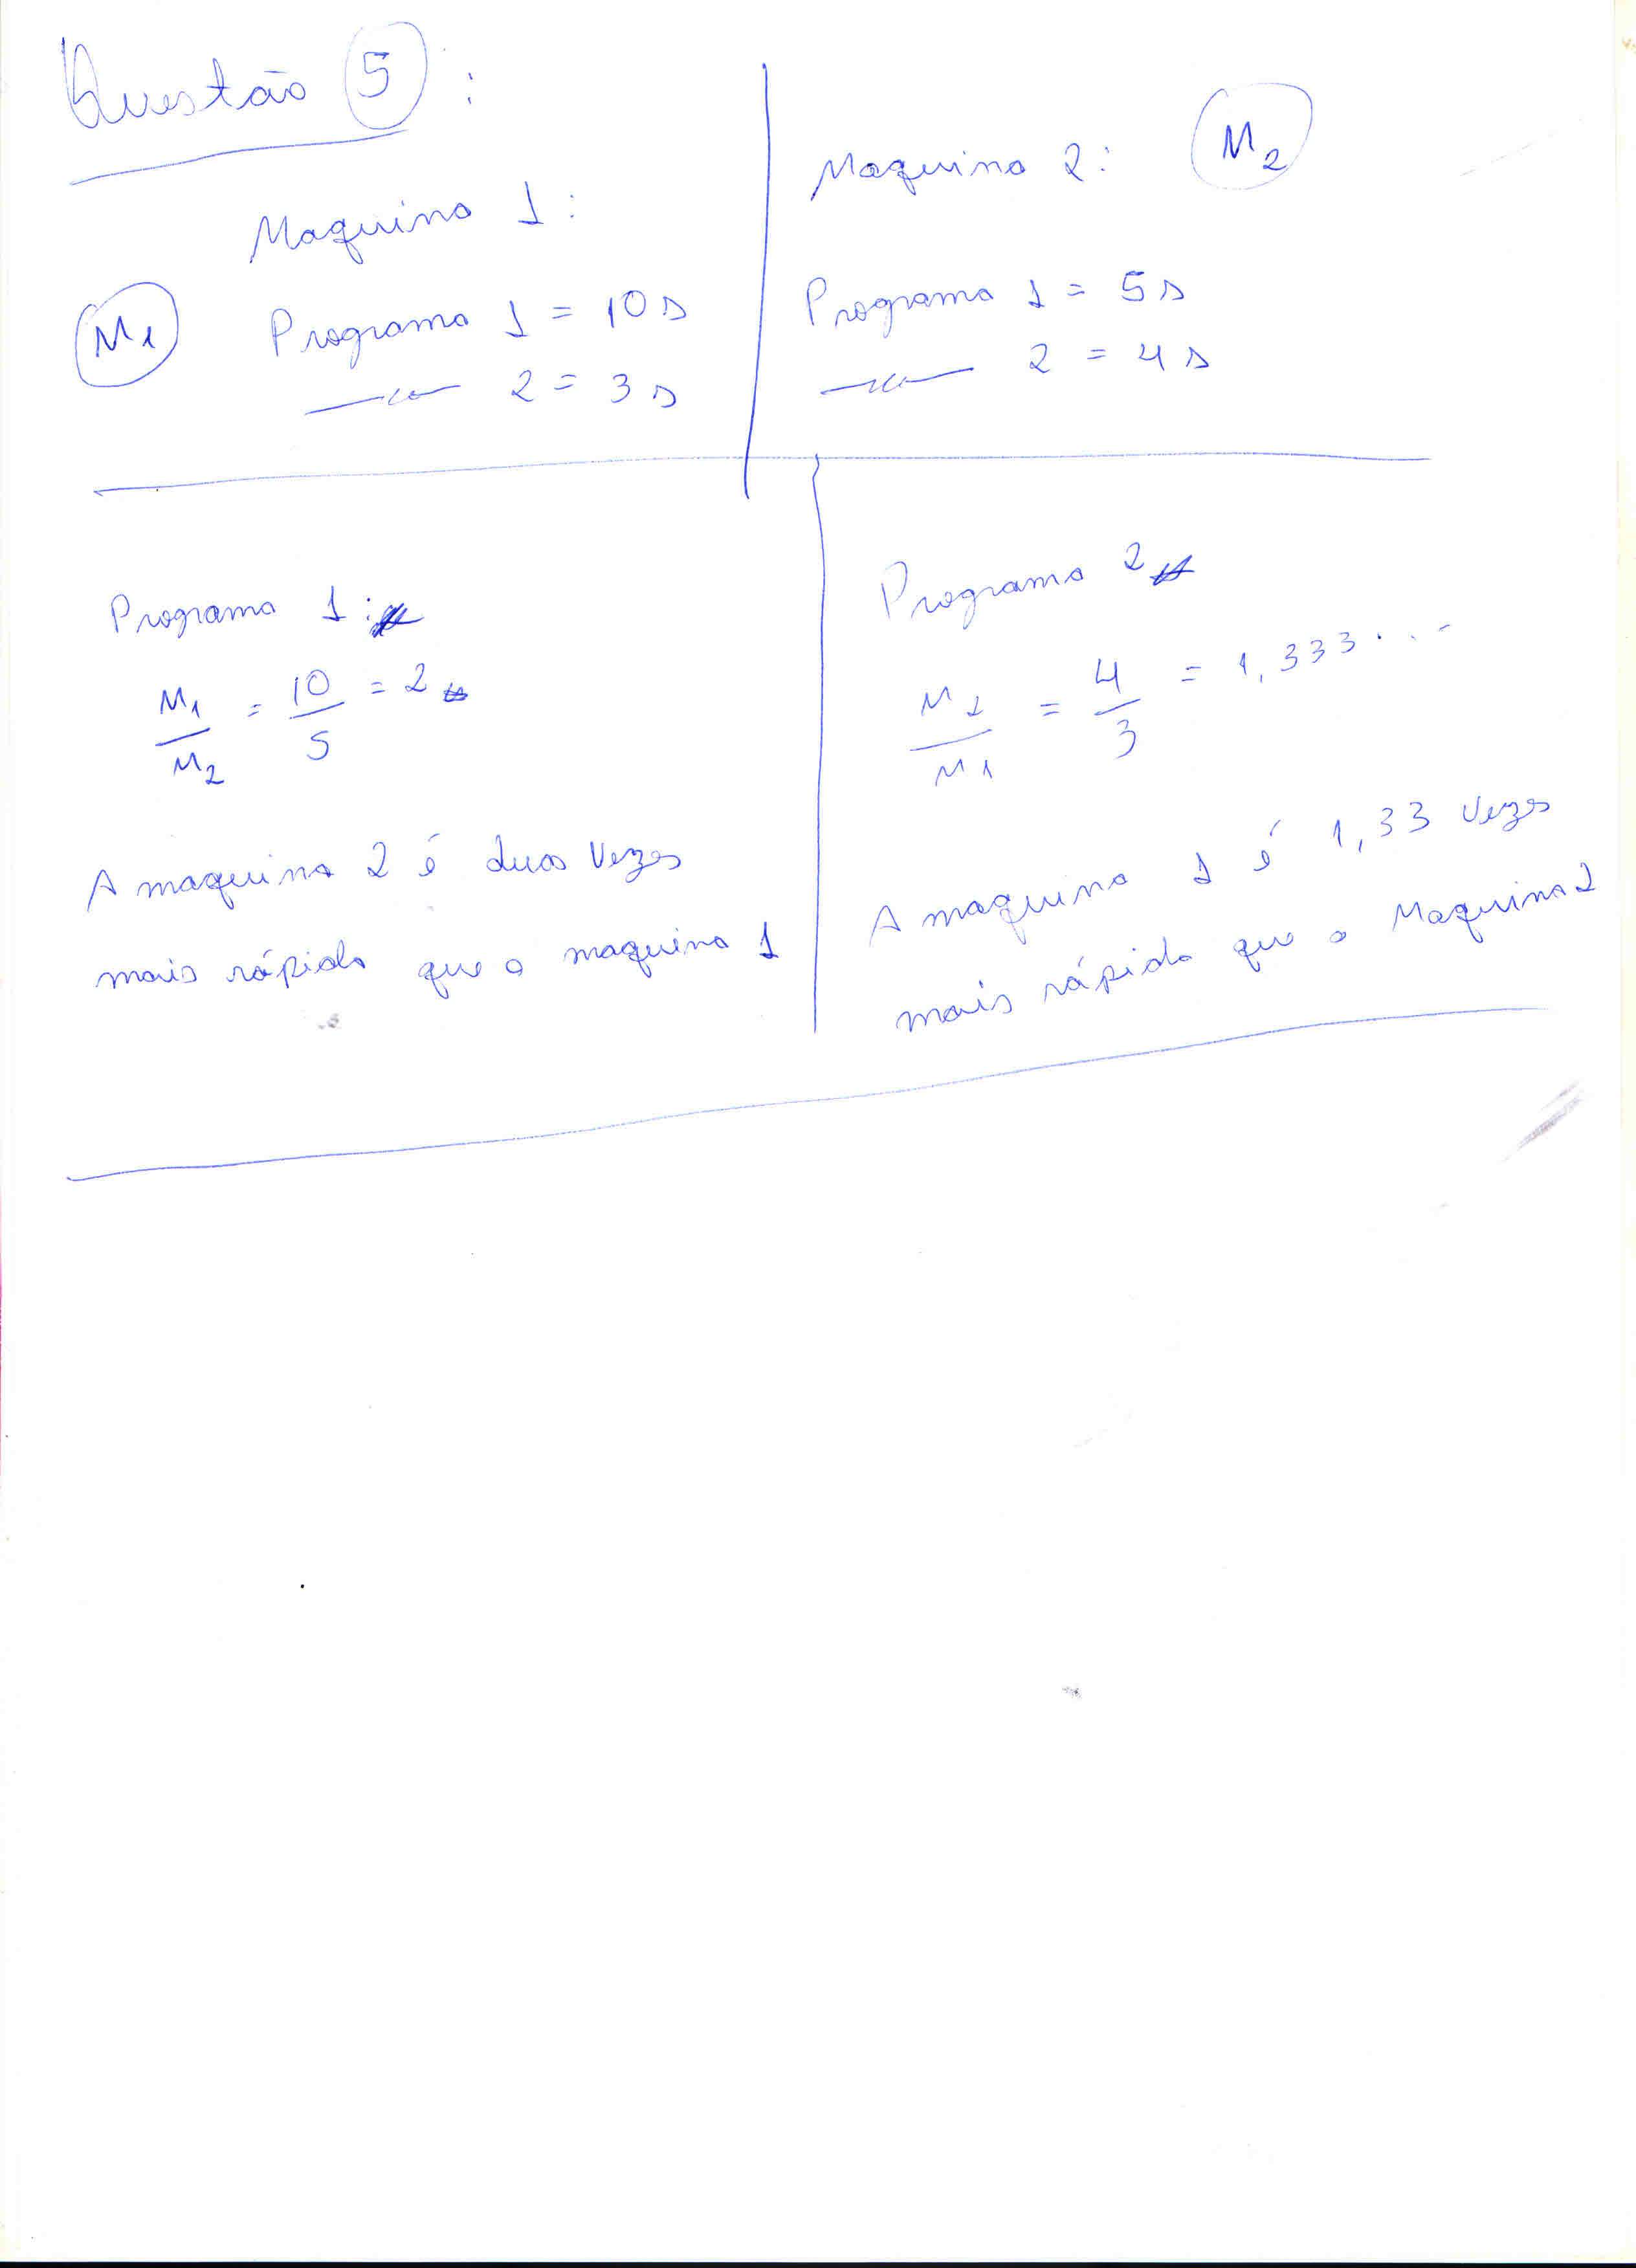 Questão 5 :
Maquina 1 :
M1
Programa 1 = 10 s
—〃— 2 = 3 s
Maquina 2 : M2
Programa 1 = 5 s
—〃— 2 = 4 s
Programa 1 :
M1/M2 = 10/5 = 2
A maquina 2 é duas vezes
mais rápida que a maquina 1
Programa 2
M2/M1 = 4/3 = 1,333...
A maquina 1 é 1,33 vezes
mais rápida que a Maquina 2